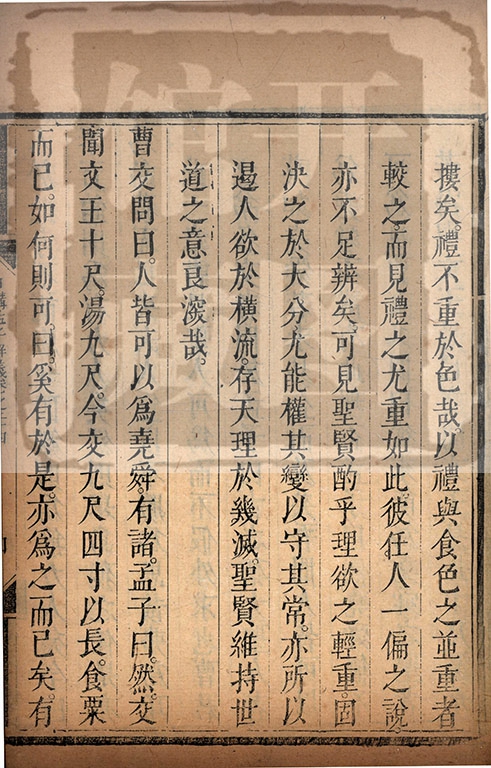 摟矣。禮不重於色哉。以禮與食色之並重者
較之。而見禮之尤重如此。彼任人一偏之說。
亦不足辨矣。可見聖賢酌乎理欲之輕重。固
決之於大分。尤能權其變以守其常。亦所以
遏人欲於橫流。存天理於幾滅。聖賢維持世
道之意良深哉。
曹交問曰。人皆可以爲堯舜。有諸。孟子曰。然。交
聞文王十尺。湯九尺。今交九尺四寸以長。食粟
而已。如何則可。曰。奚有於是。亦爲之而已矣。有